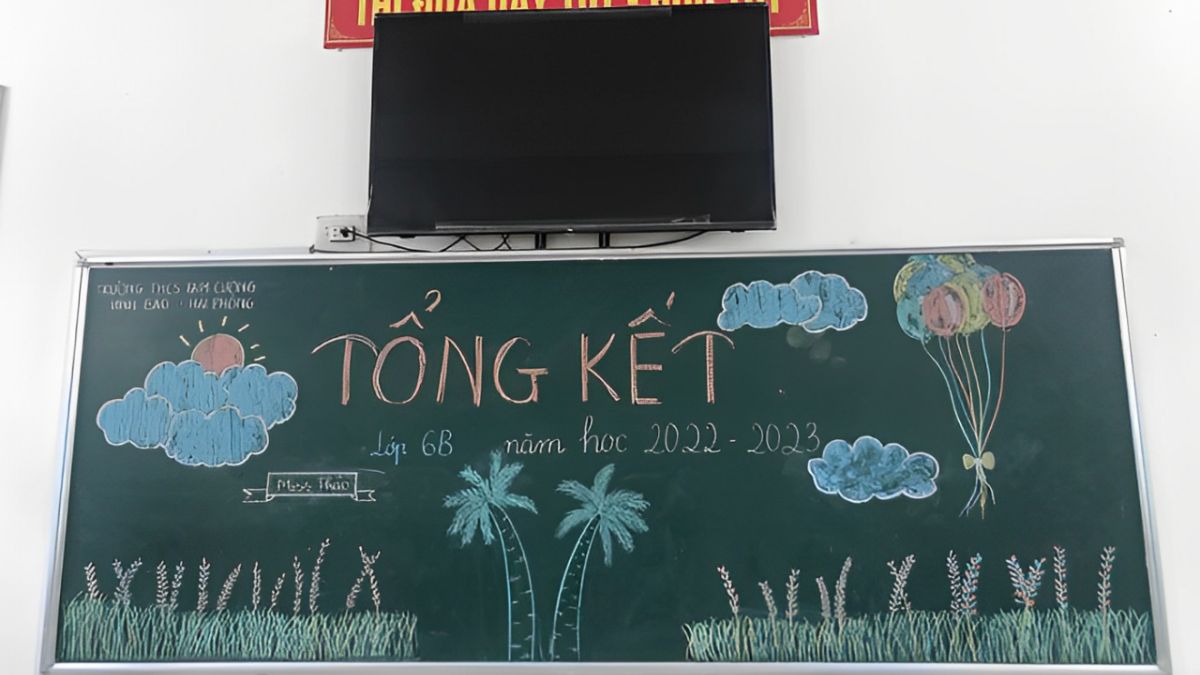 THI ĐUA DẠY TỐT
TRƯỜNG THCS TAM CƯỜNG
VĨNH BẢO - HẢI PHÒNG
TỔNG KẾT
Lớp 6B năm học 2022-2023
Miss Thảo